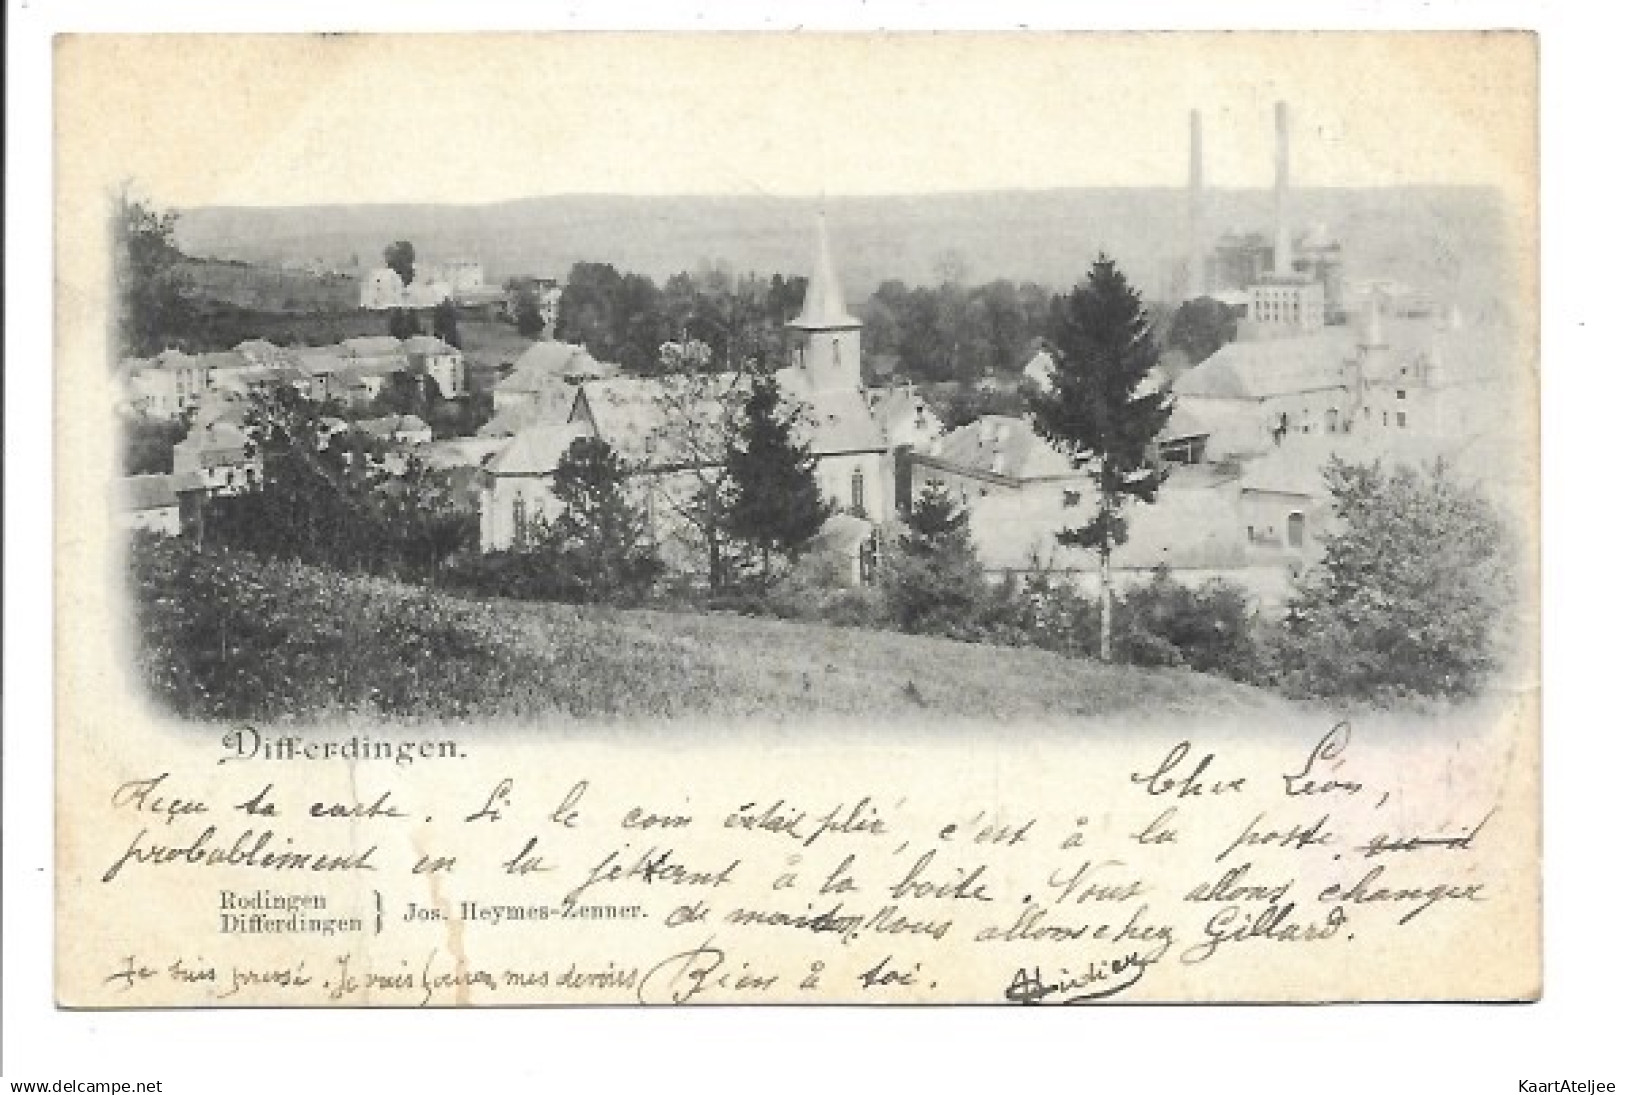 Differdingen.
Cher Léon,
Reçu ta carte. Si le coin était plié, c'est à la poste
probablement en la jettant à la boite. Nous allons changer
Rodingen
Differdingen } Jos. Heymes-Zenner.
de maison. Nous allons chez Gillard.
Je suis pressé. Je vais mes devoirs Bien à toi.
www.delcampe.net
KaartAteljee